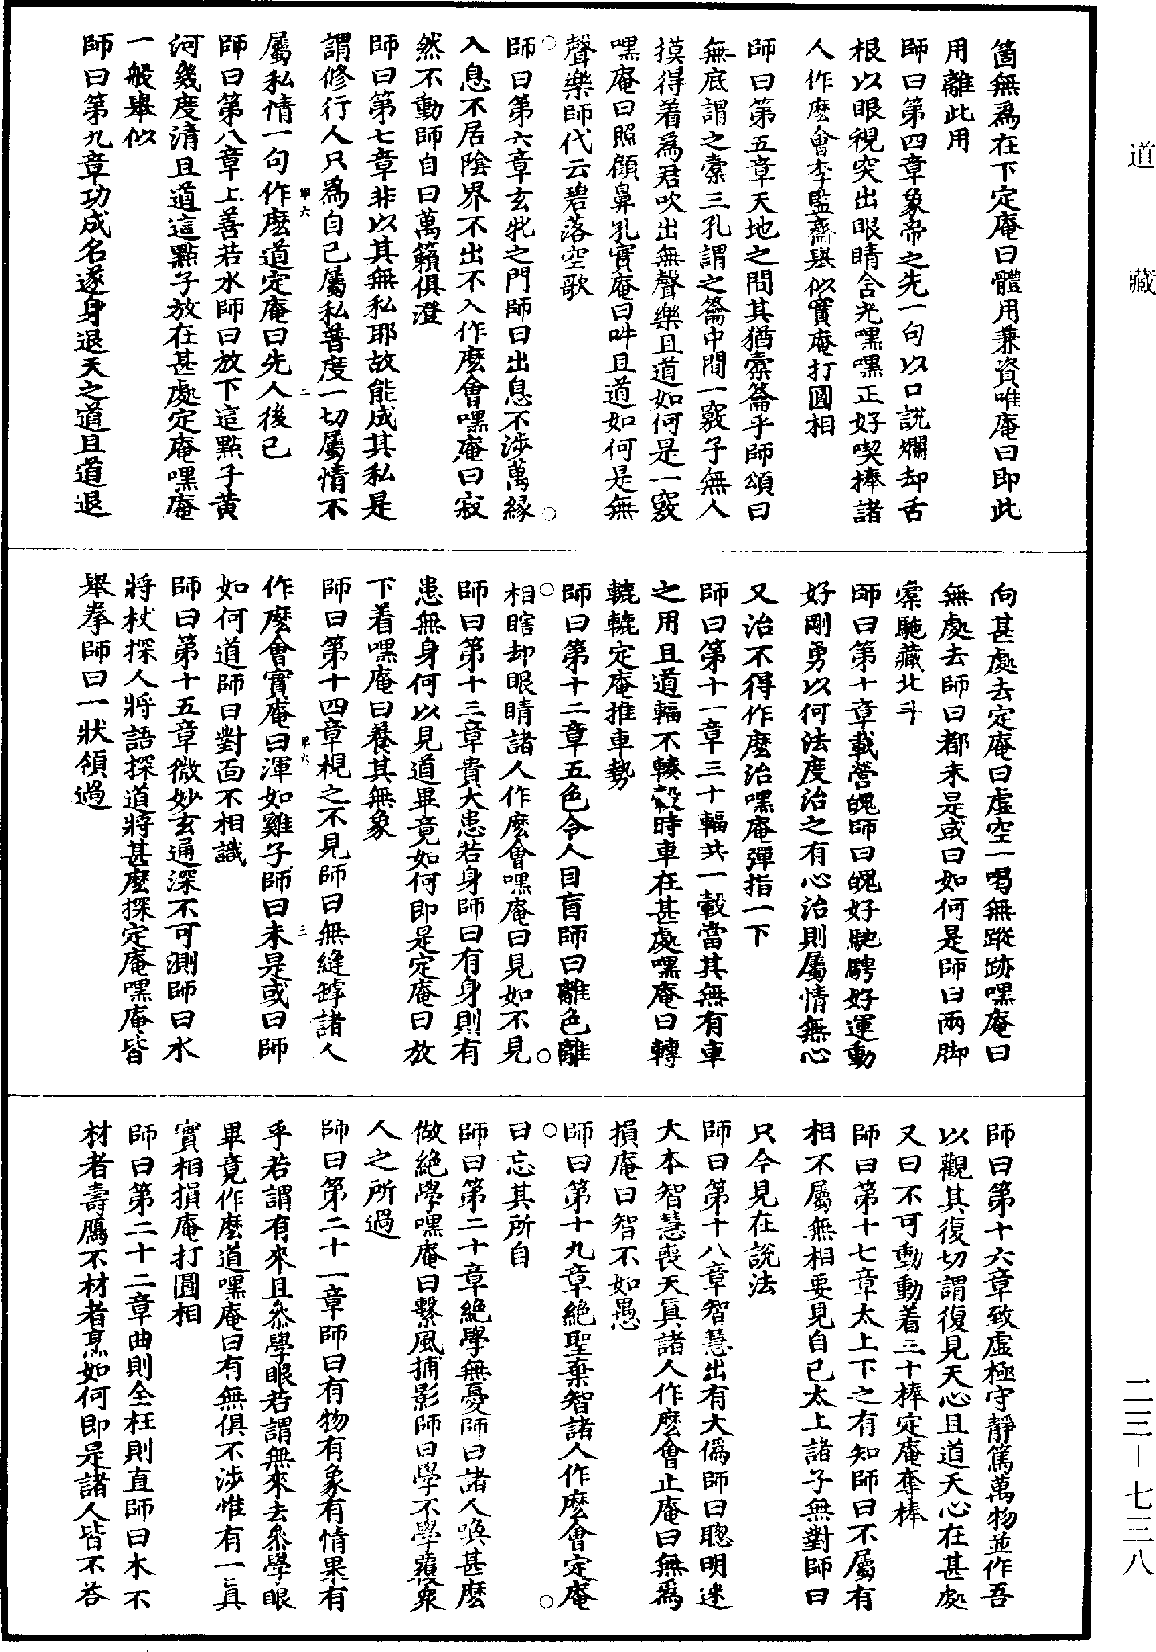 道藏
二三—七三八
箇無爲在下定庵曰體用兼資唯庵曰即此
用離此用
師曰第四章象帝之先一句以口說爛却舌
根以眼視突出眼睛含光嘿嘿正好喫棒諸
人作麽會李監齋舉似實庵打圓相
師曰第五章天地之間其猶橐籥乎師頌曰
無底謂之橐三孔謂之籥中間一竅子無人
摸得着爲君吹出無聲樂且道如何是一竅
嘿庵曰照顧鼻孔實庵曰吽且道如何是無
聲樂師代云碧落空歌
師曰第六章玄牝之門師曰出息不涉萬緣
入息不居陰界不出不入作麽會嘿庵曰寂
然不動師自曰萬籟俱澄
師曰第七章非以其無私耶故能成其私是
謂修行人只爲自己屬私普度一切屬情不
屬私情一句作麽道定庵曰先人後己
師曰第八章上善若水師曰放下這點子黃
河幾度清且道這點子放在甚處定庵嘿庵
一般舉似
師曰第九章功成名遂身退天之道且道退
向甚處去定庵曰虛空一喝無蹤跡嘿庵曰
無處去師曰都未是或曰如何是師曰兩脚
橐駞藏北斗
師曰第十章載營魄師曰魄好馳騁好運動
好剛勇以何法度治之有心治則屬情無心
又治不得作麽治嘿庵彈指一下
師曰第十一章三十輻共一轂當其無有車
之用且道輻不轃轂時車在甚處嘿庵曰轉
轆轆定庵推車勢
師曰第十二章五色令人目盲師曰離色離
相瞎却眼睛諸人作麽會嘿庵曰見如不見
師曰第十三章貴大患若身師曰有身則有
患無身何以見道畢竟如何即是定庵曰放
下着嘿庵曰養其無象
師曰第十四章視之不見師曰無縫罅諸人
作麽會實庵曰渾如雞子師曰未是或曰師
如何道師曰對面不相識
師曰第十五章微妙玄通深不可測師曰水
將杖探人將語探道將甚麽探定庵嘿庵皆
舉拳師曰一狀領過
師曰第十六章致虛極守靜篤萬物並作吾
以觀其復切謂復見天心且道天心在甚處
又曰不可動動着三十棒定庵奪棒
師曰第十七章太上下之有知師曰不屬有
相不屬無相要見自己太上諸子無對師曰
只今見在說法
師曰第十八章智慧出有大僞師曰聰明迷
大本智慧喪天眞諸人作麽會止庵曰無爲
損庵曰智不如愚
師曰第十九章絶聖棄智諸人作麽會定庵
曰忘其所自
師曰第二十章絶學無憂師曰諸人喚甚麽
做絶學嘿庵曰繫風捕影師曰學不學復衆
人之所過
師曰第二十一章師曰有物有象有情果有
乎若謂有來且叅學眼若謂無來去叅學眼
畢竟作麽道嘿庵曰有無俱不涉惟有一眞
實相損庵打圓相
師曰第二十二章曲則全枉則直師曰木不
材者壽鴈不材者烹如何即是諸人皆不荅